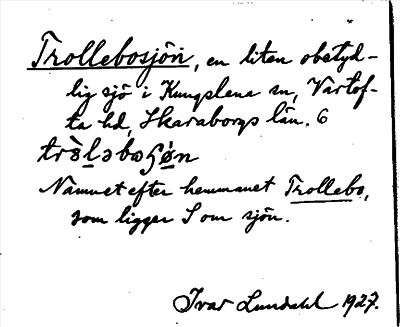 Trollebosjön, en liten obetyd-
lig sjö i Kungslena sn, Vartof-
ta hd, Skaraborgs län. 6
trɔ̀ləboʃø̀n
Namnet efter hemmanet Trollebo,
som ligger S om sjön.
Ivar Lundahl 1927.